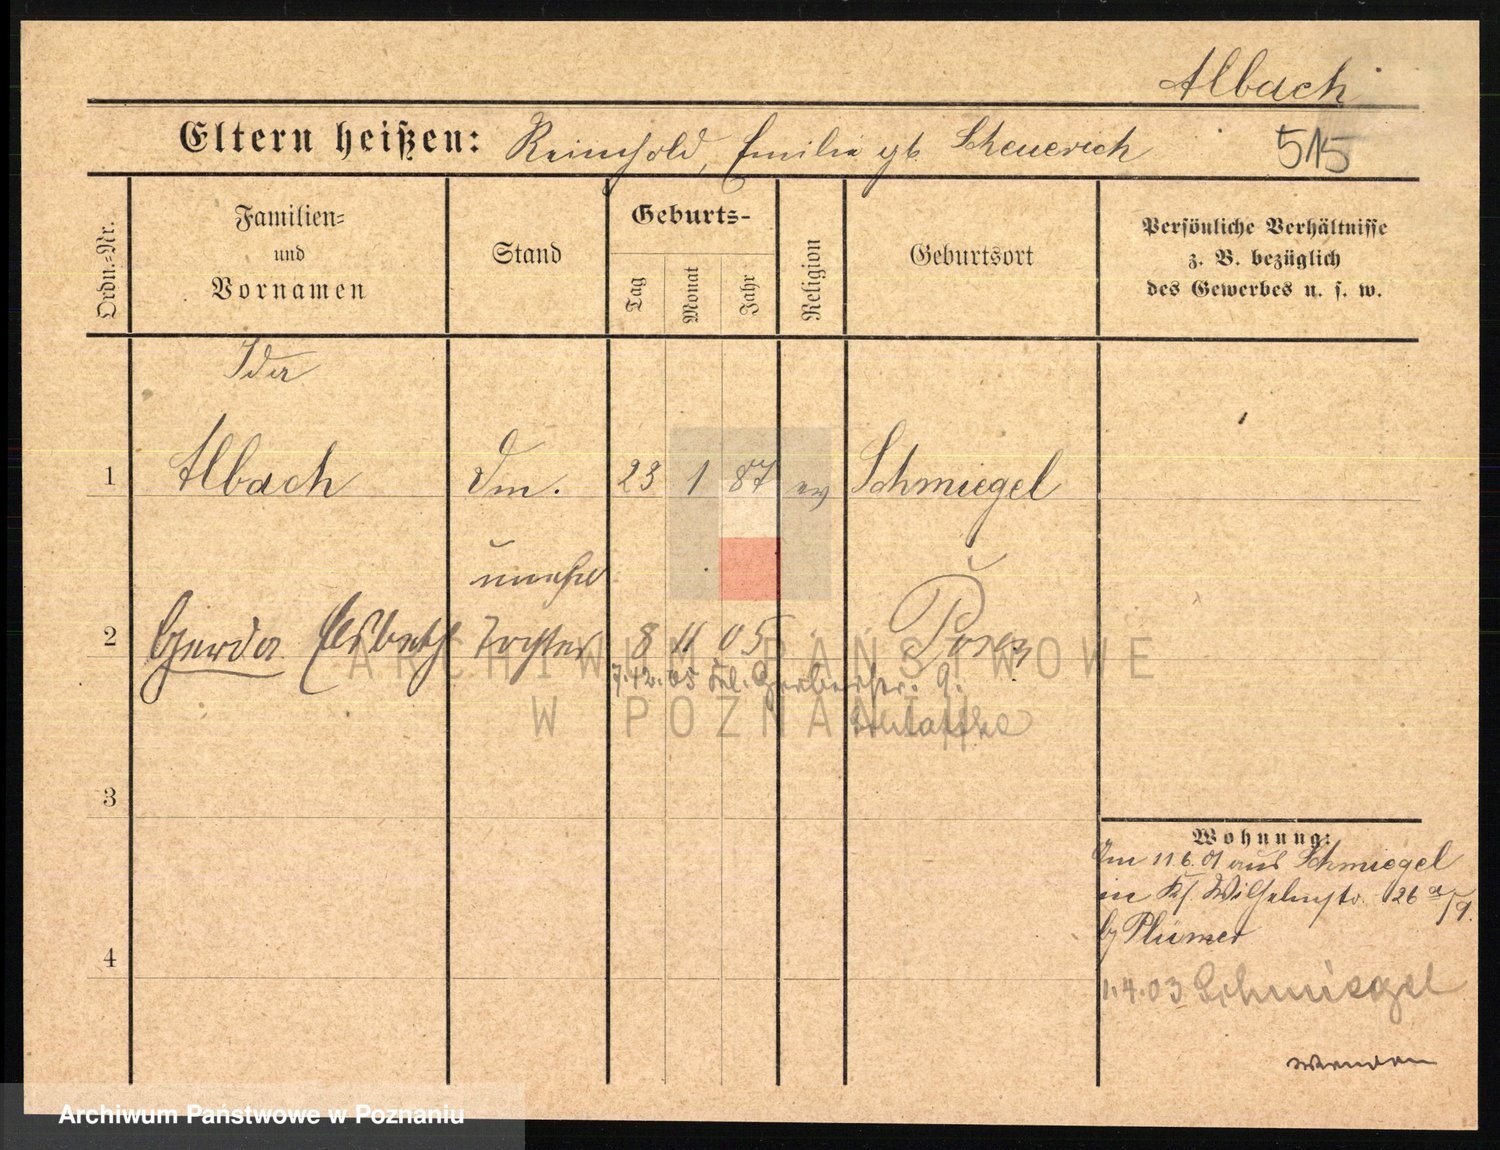 Albach
Eltern heißen: Reinhold, Emilie gb Scheuerich 515
Ordn.=Nr.
Familien=
und
Vornamen
Stand
Geburts-
Tag
Monat
Jahr
Religion
Geburtsort
Persönliche Verhältnisse
z. B. bezüglich
des Gewerbes u. s. w.
Ida
1 Albach 23 1 87 ev Schmiegel
unehel
2 Gerda Elsbeth Tochter 8 11 05 Posen
7.12.05 Gerberstr. 9.
3
4
Wohnung:
Am 11.6.01 aus Schmiegel
in Wilhelmstr. 26
b/ Plümer
1.4.03 Schmiegel
wenden
ARCHIWUM PAŃSTWOWE
W POZNANIU
Archiwum Państwowe w Poznaniu